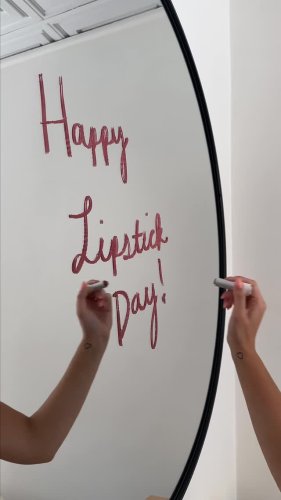 Happy
Lipstick
Day!